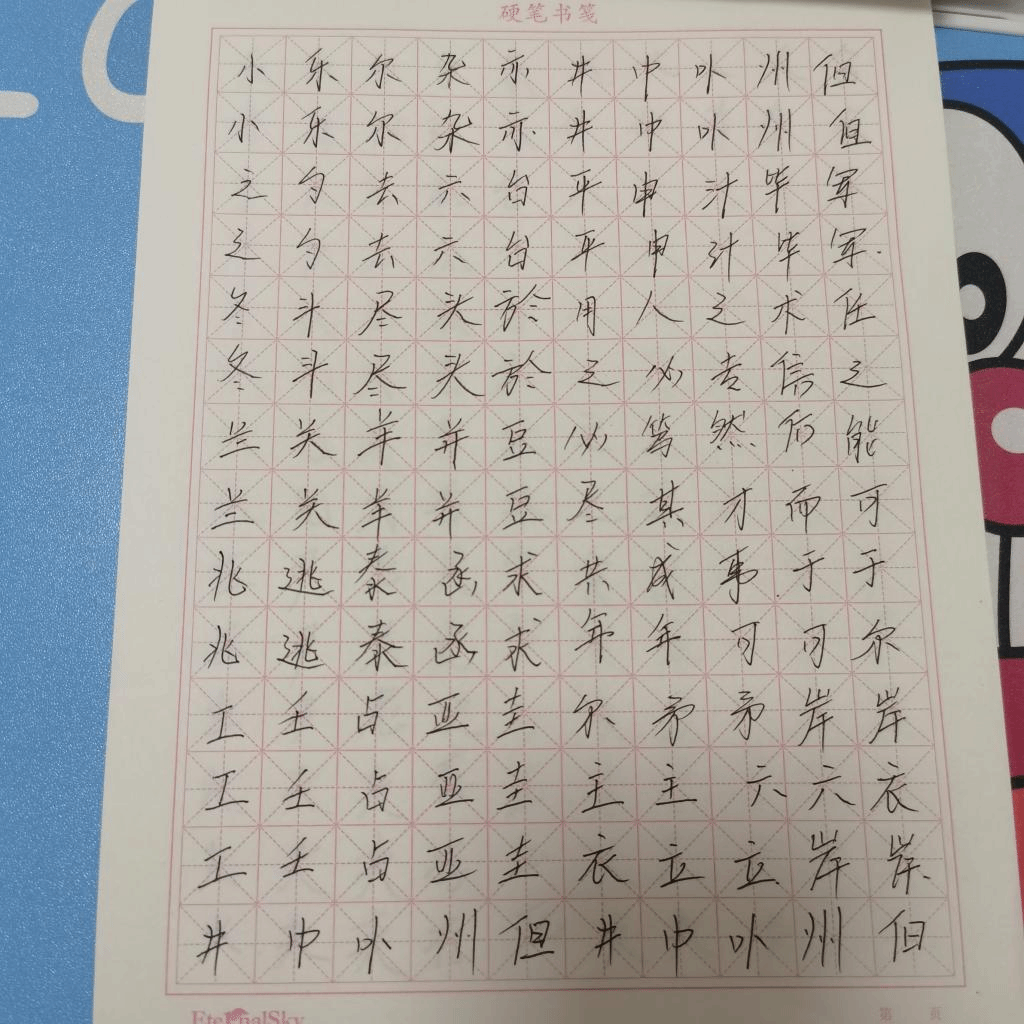 硬笔书笺
小乐尔杂亦井巾卟州但
小乐尔杂亦井巾卟州但
之勺去六台平申汁毕军
之勺去六台平申计毕军
冬斗尽头於用人之术任
冬斗尽头於之必专信之
兰关羊并豆必笃然后能
兰关羊并豆尽其才而可
兆逃泰函求共成事于于
兆逃泰函求年年可可尔
工壬占亚圭尔矛矛岸岸
工壬占亚圭主主六六衣
工壬占亚圭衣立立岸岸
井巾卟州但井巾卟州但
EternalSky 第 页